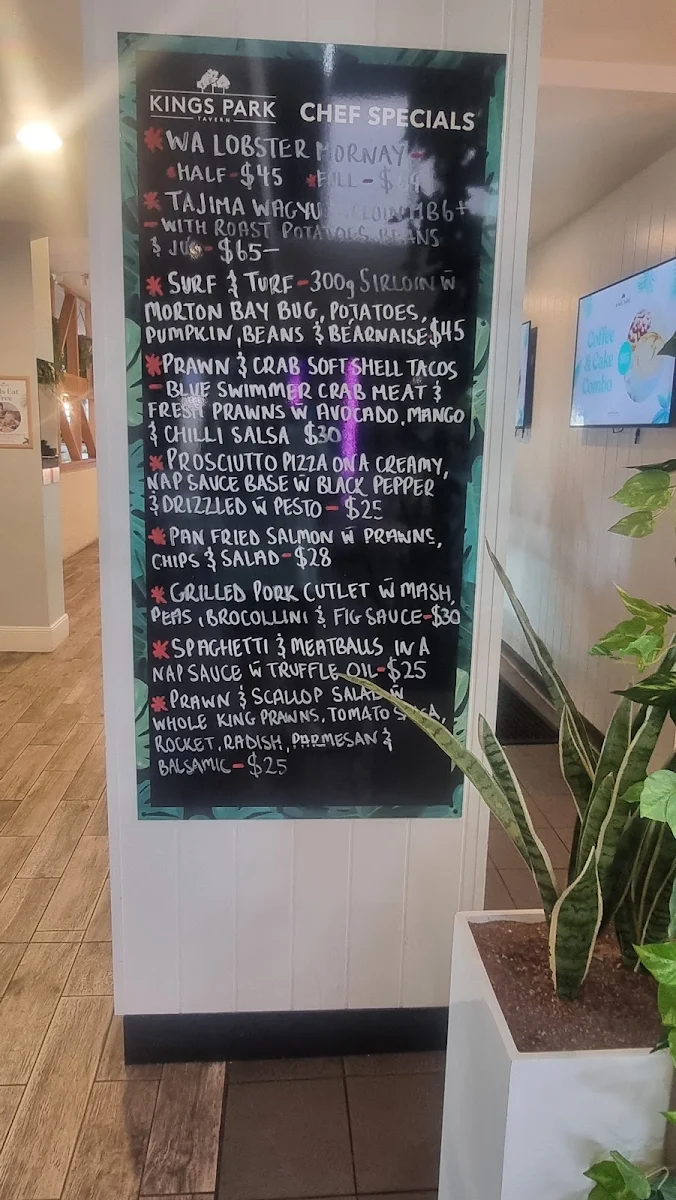 KINGS PARK
TAVERN
CHEF SPECIALS
* WA LOBSTER MORNAY -
* HALF - $45 * FULL -
* TAJIMA WAGYU SIRLOIN MB6+
- WITH ROAST POTATOES, BEANS
& JUS - $65 -
* SURF & TURF - 300g SIRLOIN W̄
MORTON BAY BUG, POTATOES,
PUMPKIN, BEANS & BEARNAISE $45
* PRAWN & CRAB SOFTSHELL TACOS
- BLUE SWIMMER CRAB MEAT &
FRESH PRAWNS W̄ AVOCADO, MANGO
& CHILLI SALSA $30
* PROSCIUTTO PIZZA ON A CREAMY,
NAP SAUCE BASE W̄ BLACK PEPPER
& DRIZZLED W̄ PESTO - $25
* PAN FRIED SALMON W̄ PRAWNS,
CHIPS & SALAD - $28
* GRILLED PORK CUTLET W̄ MASH,
PEAS, BROCOLLINI & FIG SAUCE - $30
* SPAGHETTI & MEATBALLS IN A
NAP SAUCE W̄ TRUFFLE OIL - $25
* PRAWN & SCALLOP SALAD W̄
WHOLE KING PRAWNS, TOMATO SALSA,
ROCKET, RADISH, PARMESAN &
BALSAMIC - $25
Coffee
& Cake
Combo